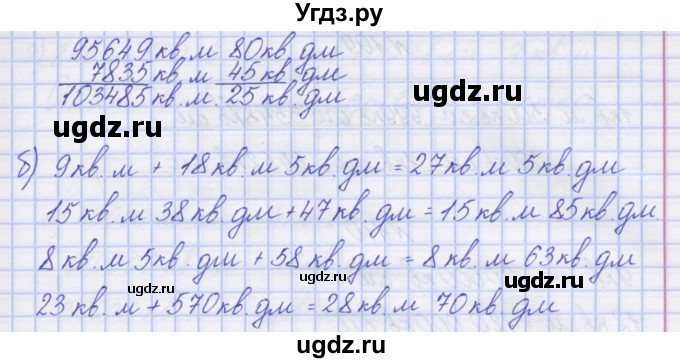 Угдз.ру
95649 кв.м 80 кв.дм
7835 кв.м 45 кв.дм
103485 кв.м. 25 кв.дм
угдз.ру
угдз.ру
б) 9 кв.м + 18 кв.м 5 кв.дм = 27 кв.м 5 кв.дм
15 кв.м 38 кв.дм + 47 кв.дм = 15 кв.м 85 кв.дм.
угдз.ру
8 кв.м 5 кв.дм + 58 кв.дм = 8 кв.м 63 кв.дм
угдз.ру
угдз.ру
23 кв.м + 570 кв.дм = 28 кв.м 70 кв.дм
угдз.ру